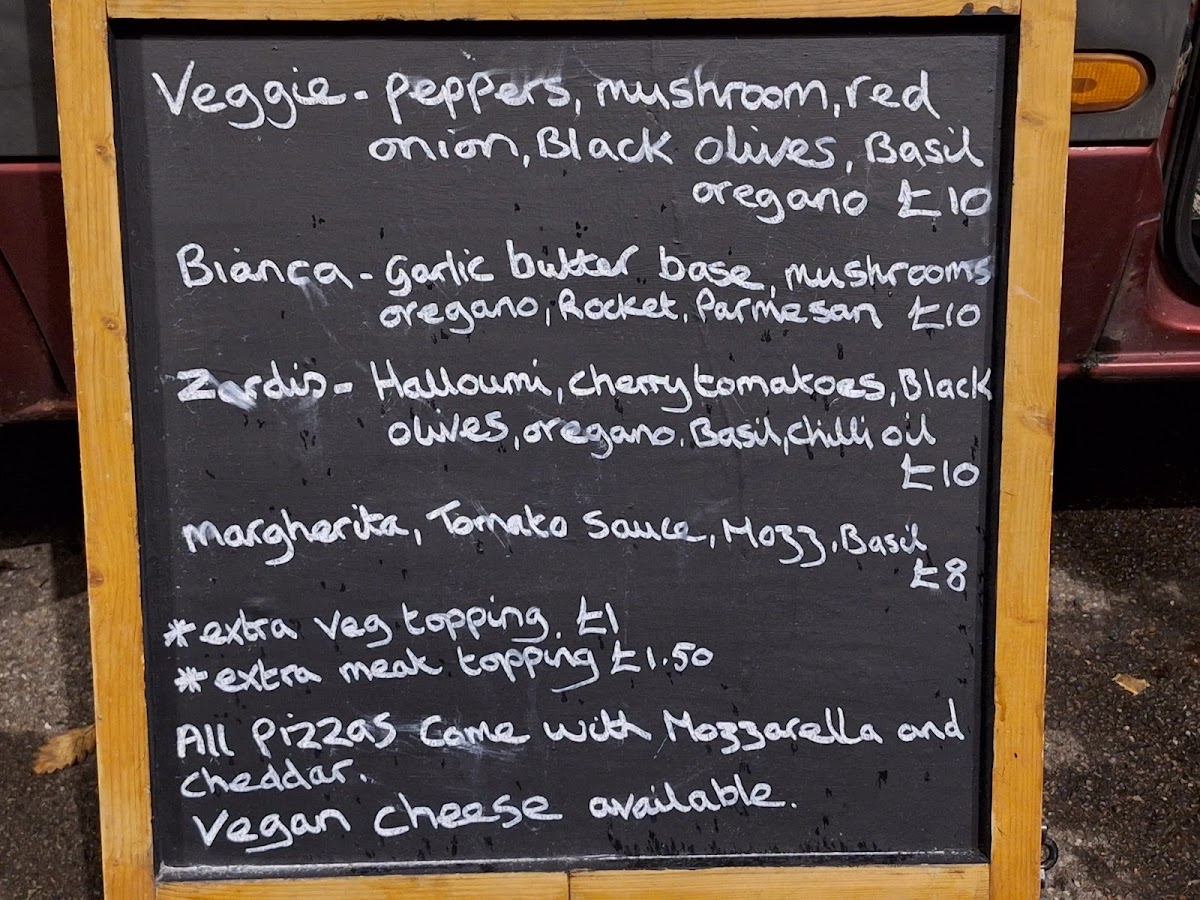 Veggie - peppers, mushroom, red
onion, Black olives, Basil
oregano £10
Bianca - garlic butter base, mushrooms
oregano, Rocket, Parmesan £10
Zardis - Halloumi, cherry tomatoes, Black
olives, oregano, Basil, chilli oil
£10
Margherita, Tomato Sauce, Mozz, Basil
£8
*extra veg topping. £1
*extra meat topping £1.50
All Pizzas Come with Mozzarella and
cheddar.
Vegan cheese available.